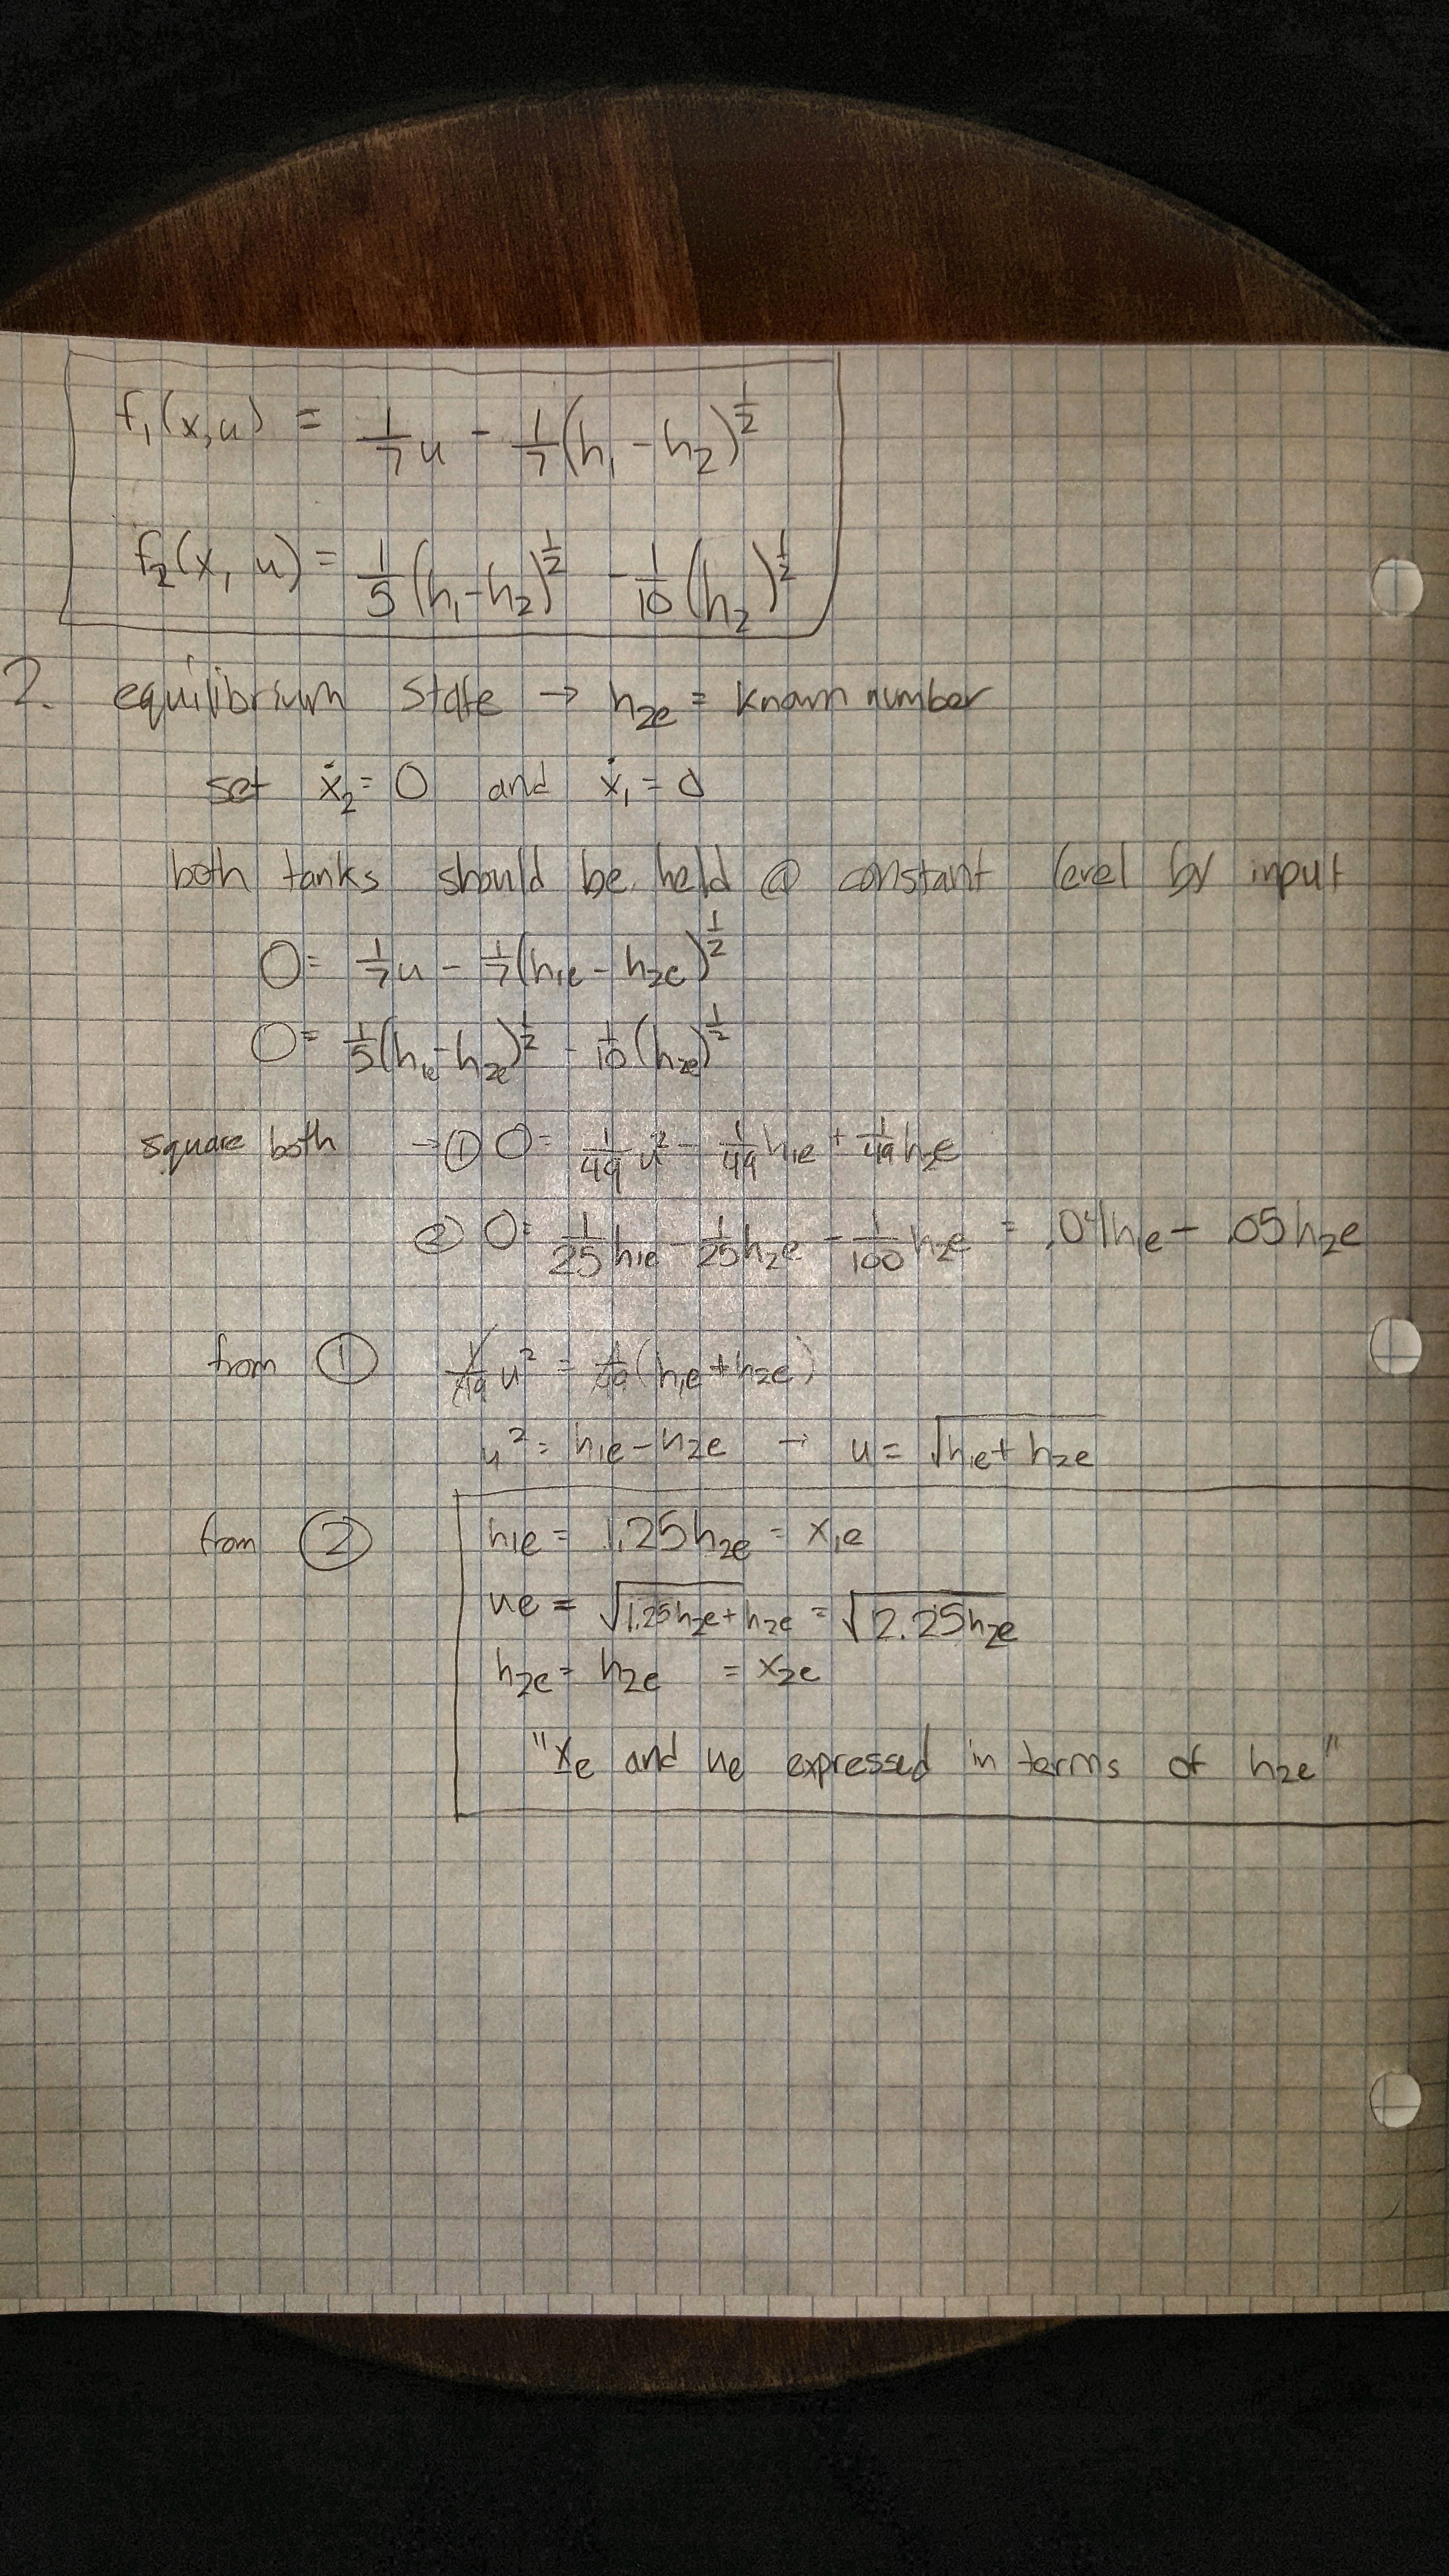 f₁(x,u) = 1/7 u - 1/7 (h₁ - h₂)^1/2
f₂(x, u) = 1/5 (h₁ - h₂)^1/2 - 1/10 (h₂)^1/2
2. equilibrium state → h₂e = known number
set ẋ₂ = 0 and ẋ₁ = 0
both tanks should be held @ constant level by input
0 = 1/7 u - 1/7 (h₁e - h₂e)^1/2
0 = 1/5 (h₁e - h₂e)^1/2 - 1/10 (h₂e)^1/2
square both → ① 0 = 1/49 u² - 1/49 h₁e + 1/49 h₂e
② 0 = 1/25 h₁e - 1/25 h₂e - 1/100 h₂e = .04h₁e - .05h₂e
from ① 1/49 u² = 1/49 (h₁e + h₂e)
u² = h₁e - h₂e → u = √(h₁e + h₂e)
from ② h₁e = 1.25h₂e = x₁e
ue = √(1.25h₂e + h₂e) = √(2.25h₂e)
h₂e = h₂e = x₂e
"xe and ue expressed in terms of h₂e"